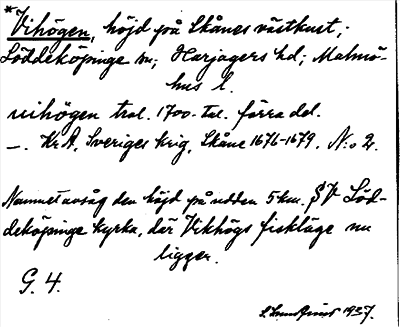 *Vihögen, höjd på Skånes västkust;
Löddeköpinge sn; Harjagers hd; Malmö-
hus l.
vihögen trol. 1700-tal. förra del.
—. KrA, Sveriges krig, Skåne 1676-1679, N:o 2.
Namnet avsåg den höjd på udden 5 km. SV Löd-
deköpinge kyrka, där Vikhögs fiskläge nu
ligger.
G. 4.
1937.